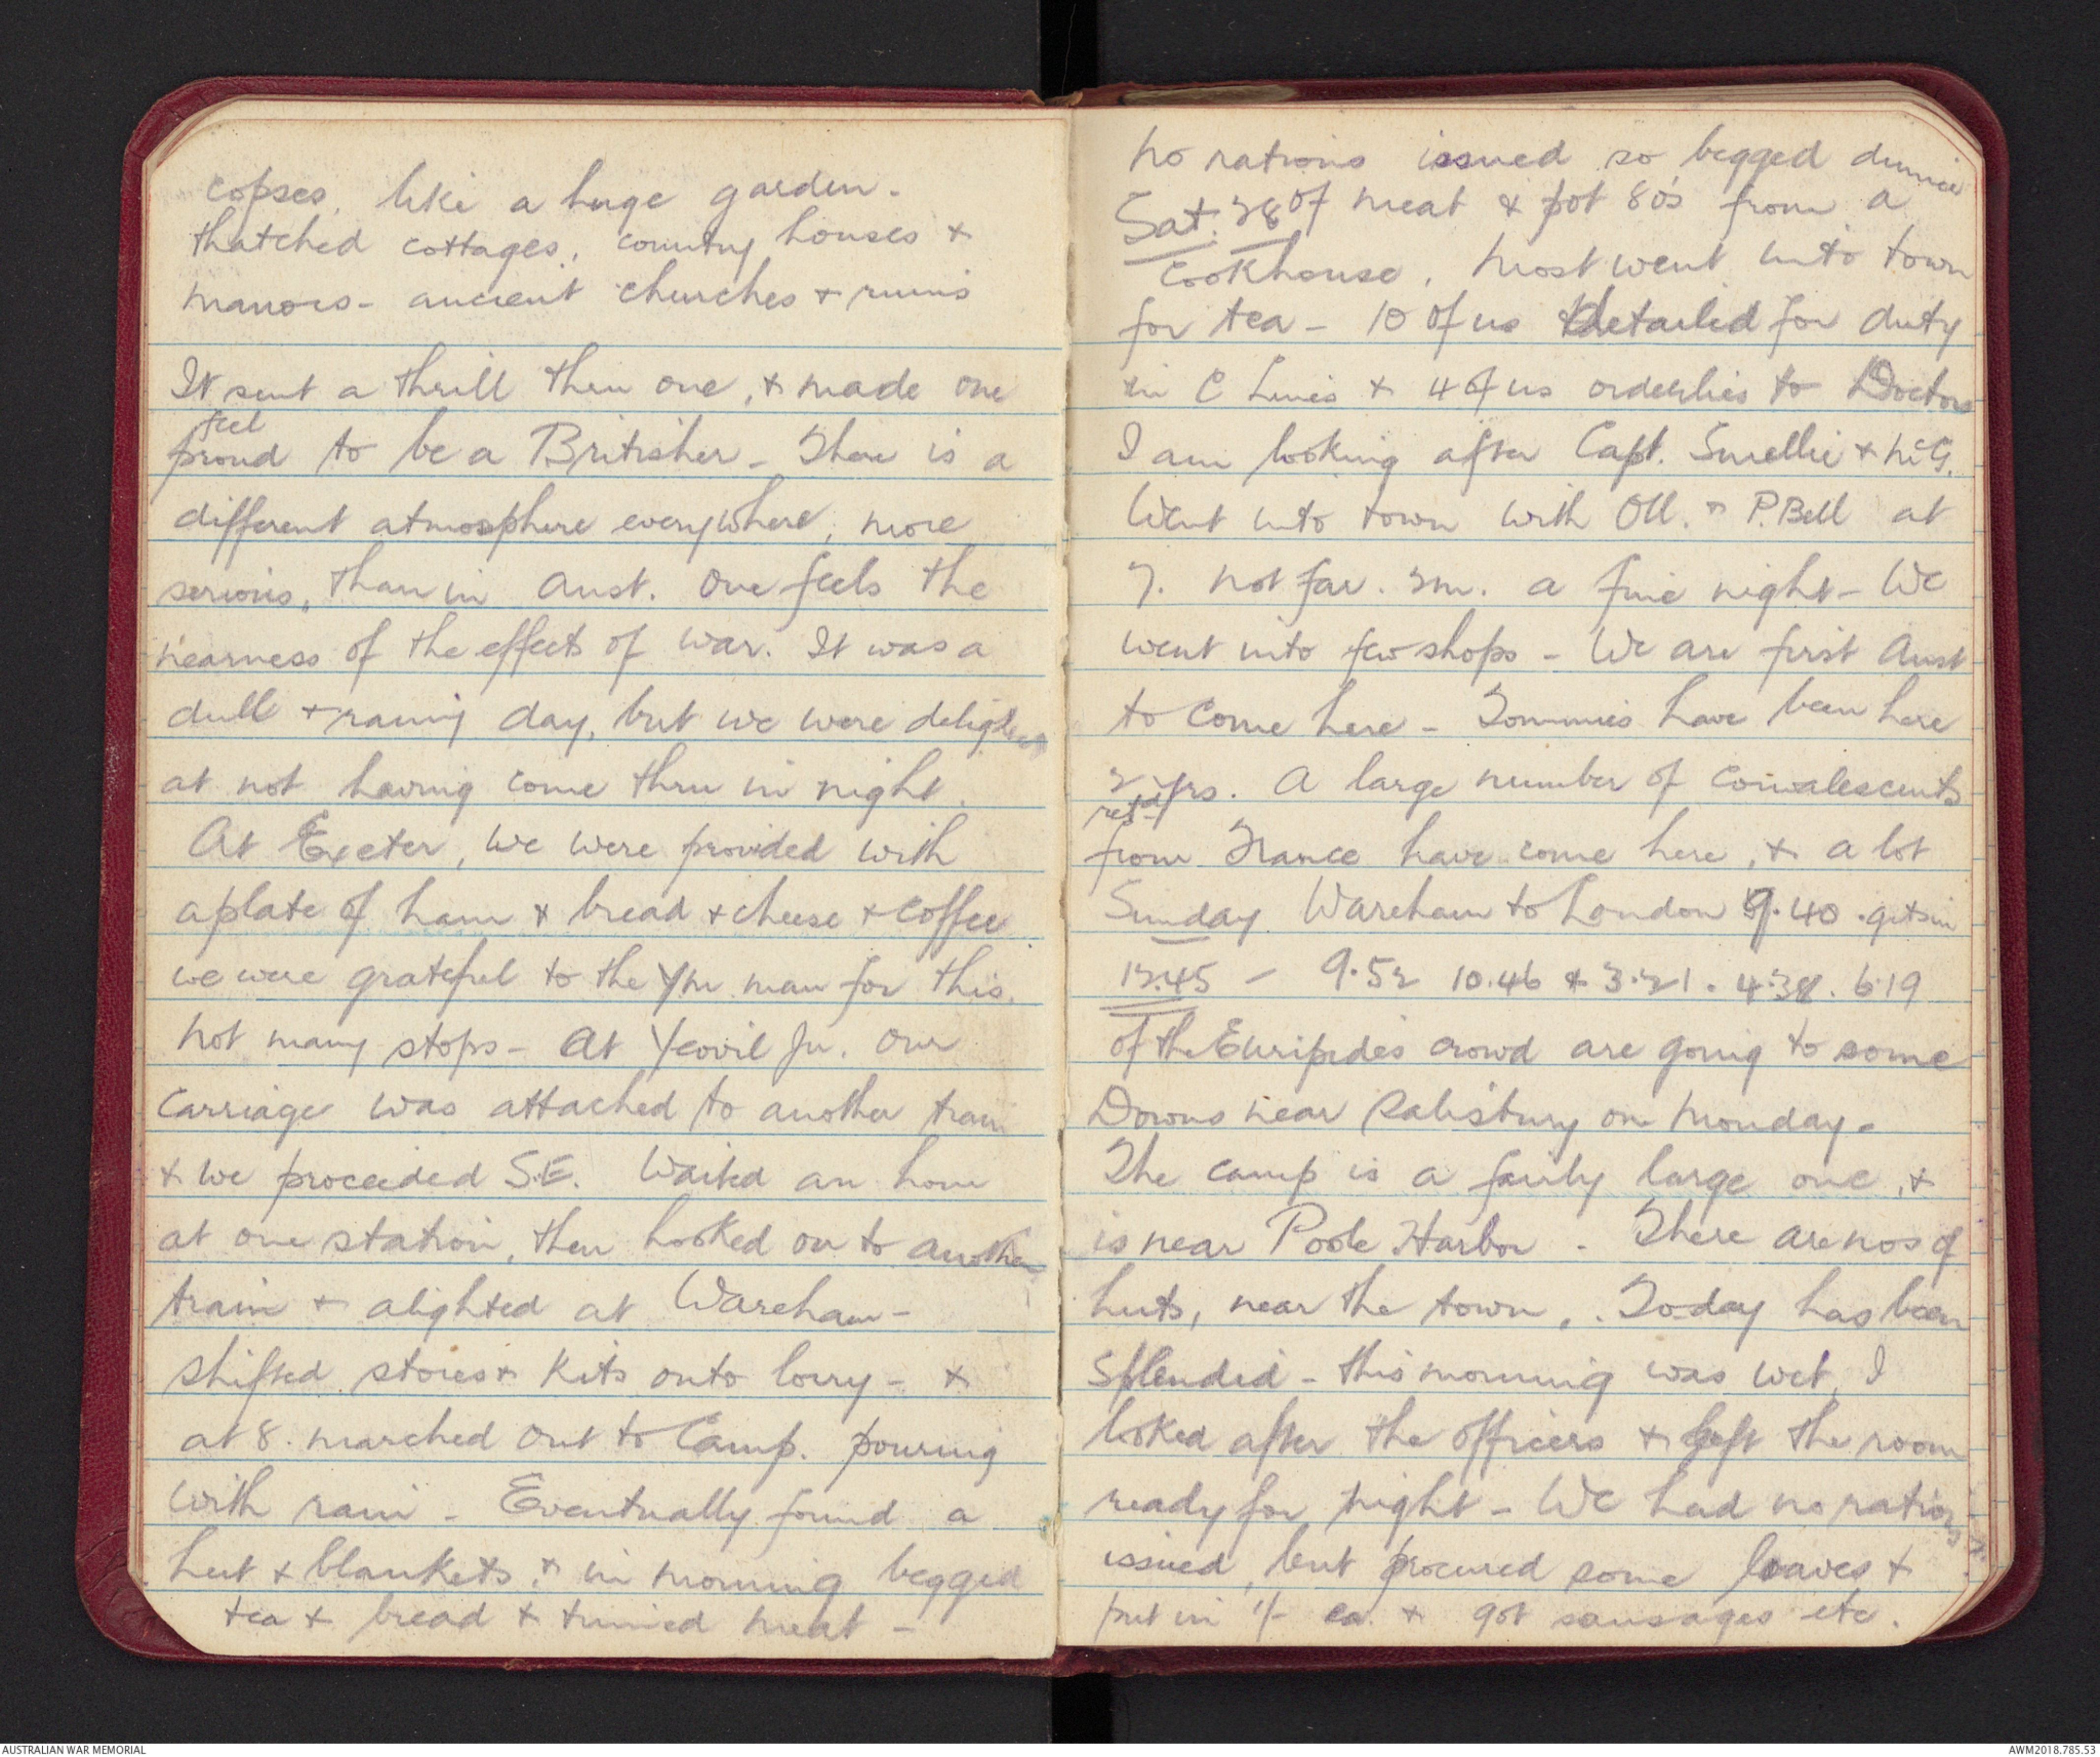 copses, like a huge garden.
thatched cottages, country houses +
manors - ancient churches + ruins
It sent a thrill thru one, + made one
feel
proud to be a Britisher - There is a
different atmosphere everywhere, more
serious, than in Aust. One feels the
nearness of the effects of war. It was a
dull + rainy day, but we were delighted
at not having come thru in night.
At Exeter, we were provided with
a plate of ham + bread + cheese + coffee
we were grateful to the man for this.
Not many stops - At Yeovil Jn. our
carriage was attached to another train
+ we proceeded S.E. Waited an hour
at one station, then hooked on to another
train + alighted at Wareham -
shifted stores + kits onto lorry - +
at 8. marched out to Camp. pouring
with rain - Eventually found a
hut + blankets, + in morning begged
tea + bread + tinned meat -
No rations issued so begged dinner
Sat. 28 of meat + pot 8os from a
cookhouse. Most went into town
for tea - 10 of us detailed for duty
in C Lines + 4 of us orderlies to Doctors
I am looking after Capt. Smellie + McG.
Went into town with Oll. + P. Bell at
7. not far. 2m. a fine night - We
went into few shops - We are first Aust
to come here - Tommies have been here
2 yrs. A large number of convalescents
retd
from France have come here, + a lot
Sunday Wareham to London 9.40 . gets in
12.45 - 9.52 10.46 + 3.21 . 4.38 . 6.19
of the Euripides crowd are going to some
Downs near Salisbury on Monday.
The camp is a fairly large one, +
is near Poole Harbor - There are nos of
huts, near the town, . Today has been
splendid - this morning was wet, I
looked after the officers + left the room
ready for night - We had no rations
issued, but procured some loaves +
put in 1/- ea. + got sausages etc.
AUSTRALIAN WAR MEMORIAL
AWM2018.785.53